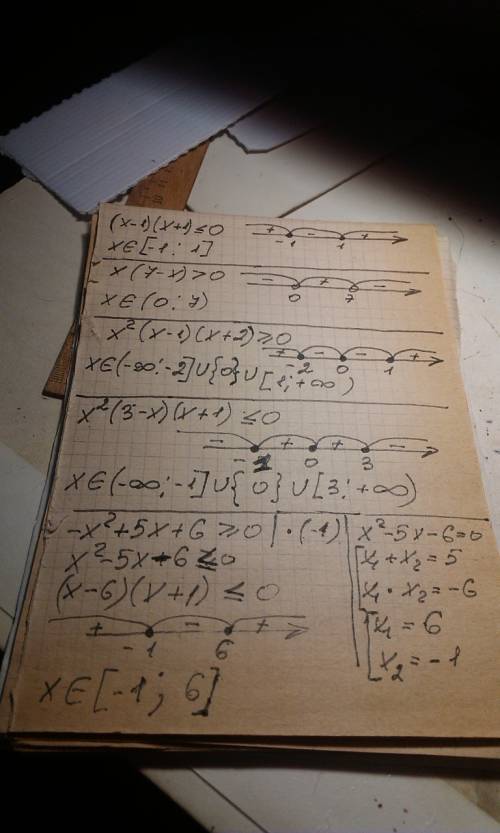 (x-1)(x+1)≤0
+ - +
-1 1
x∈[-1; 1]
x(7-x)>0
- + -
0 7
x∈(0; 7)
x²(x-1)(x+2)≥0
+ - - +
-2 0 1
x∈(-∞;-2]∪{0}∪[1;+∞)
x²(3-x)(x+1)≤0
- + + -
-1 0 3
x∈(-∞;-1]∪{0}∪[3;+∞)
-x²+5x+6≥0 |·(-1)
x²-5x-6≤0
(x-6)(x+1)≤0
+ - +
-1 6
x∈[-1; 6]
x²-5x-6=0
x₁+x₂=5
x₁·x₂=-6
x₁=6
x₂=-1